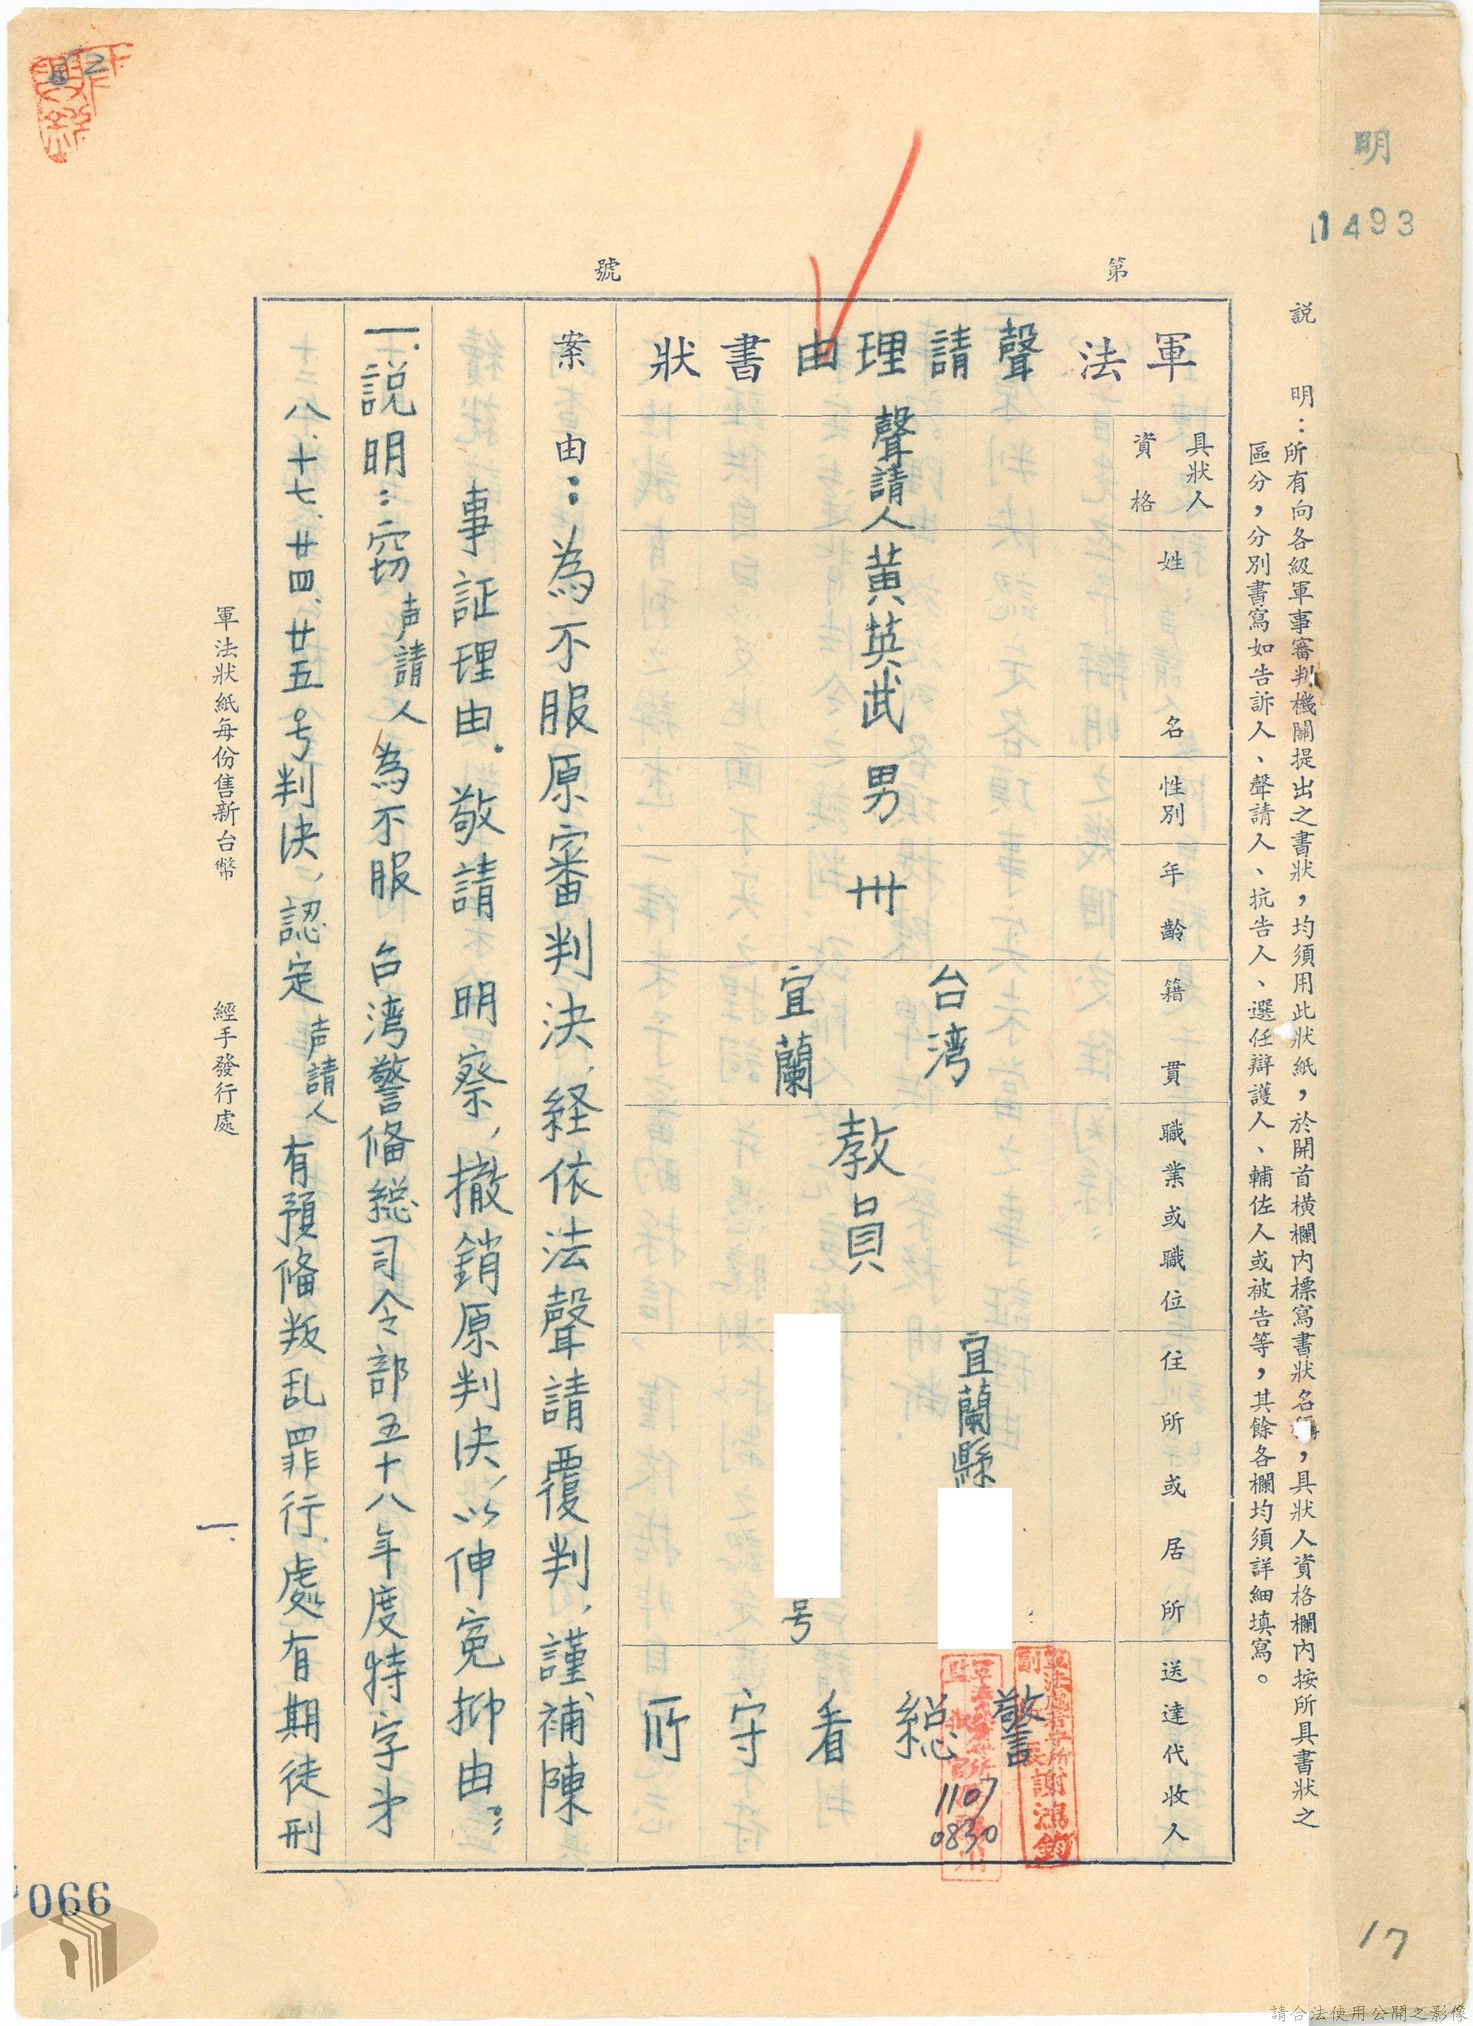 明
11493
說　明：所有向各級軍事審判機關提出之書狀，均須用此狀紙，於開首橫欄內標寫書狀名稱，具狀人資格欄內按所具書狀之
區分，分別書寫如告訴人、聲請人、抗告人、選任辯護人、輔佐人或被告等，其餘各欄均須詳細填寫。
第　號
軍法聲請理由書狀
具狀人資格
姓名
性別
年齡
籍貫
職業或職位
住所或居所
送達代收人
聲請人
黃英武
男
卅
台灣
宜蘭
教員
宜蘭縣
号
警総看守所
1107
0830
謝鴻鈞
案由：為不服原審判決，経依法聲請覆判，謹補陳
事証理由．敬請　明察，撤銷原判決，以伸寃抑由：
一.說明：窃声請人為不服　台湾警俻総司令部五十八年度特字弟
八、十七、廿四、廿五号判决，認定声請人有預俻叛乱罪行處有期徒刑
軍法狀紙每份售新台幣　經手發行處
一.
066
17
請合法使用公開之影像